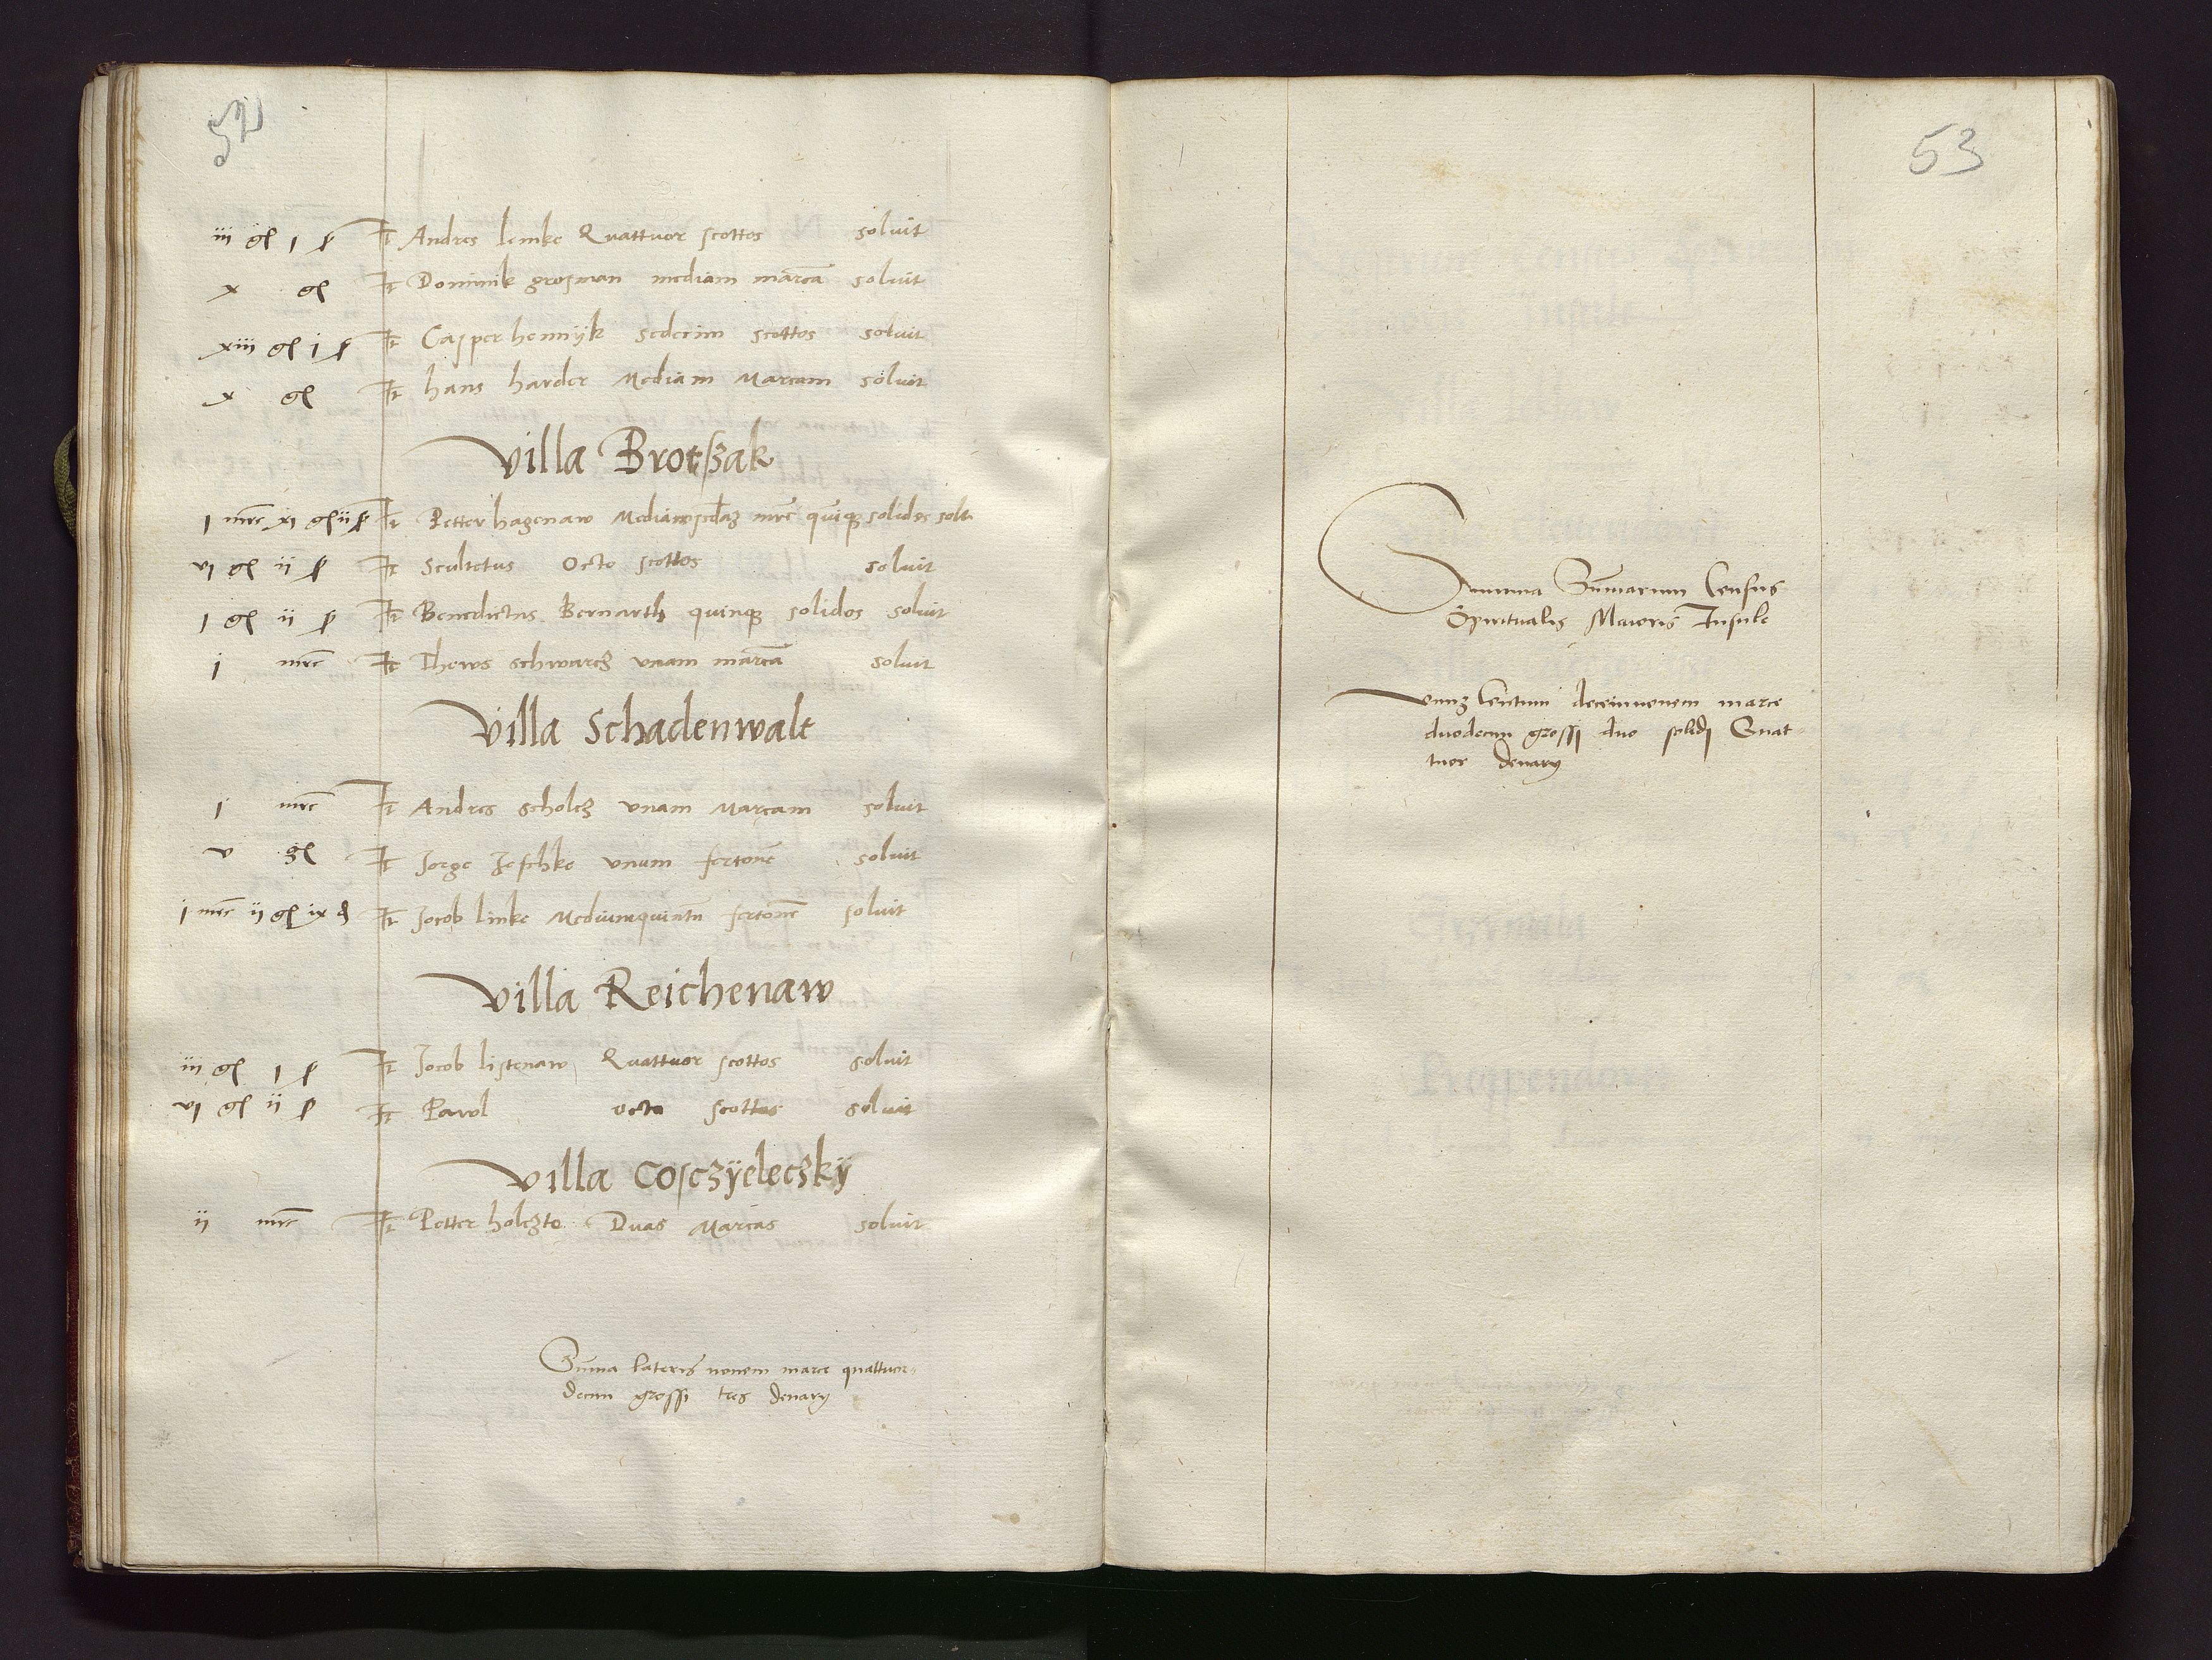 52
iii gl i ß It Andres lemke Quattuor scottos soluit
x gl It Dominik grosman mediam marcā soluit
xiii gl i ß It Casper hennijk sedecim scottos soluit
x gl It hans harder Mediam Marcam soluit
Villa Brotszak
i mrc xi gl ii ß It Petter hagenaw Mediam mrc quīqz solidos solt
vi gl ii ß It Scultetus Octo scottos soluit
i gl ii ß It Benedictus Bernarth quinqz solidos soluit
i mrc It Thews schwarcz vnam marcā soluit
Villa Schadenwalt
i mrc It Andres scholcz vnam Marcam soluit
v gl It Jorge Jeschke vnum fertonē soluit
i mrc ii gl ix d It Jocob linke Mediumquintū fertonē soluit
Villa Reichenaw
iii gl i ß It Jocob listenaw Quattuor scottos soluit
vi gl ii ß It Pawl octo scottos soluit
Villa Cosczÿeleczkÿ
ii mrc It Petter holczte Duas Marcas soluit
Sūma lateris nouem marce quattuor-
decim grossi tres denarij
53
Summa Sūmarum Census
Spiritualis Maioris Insule
Centum decemnouem marce
duodecim grossi duo solidi Quat-
tuor denarij